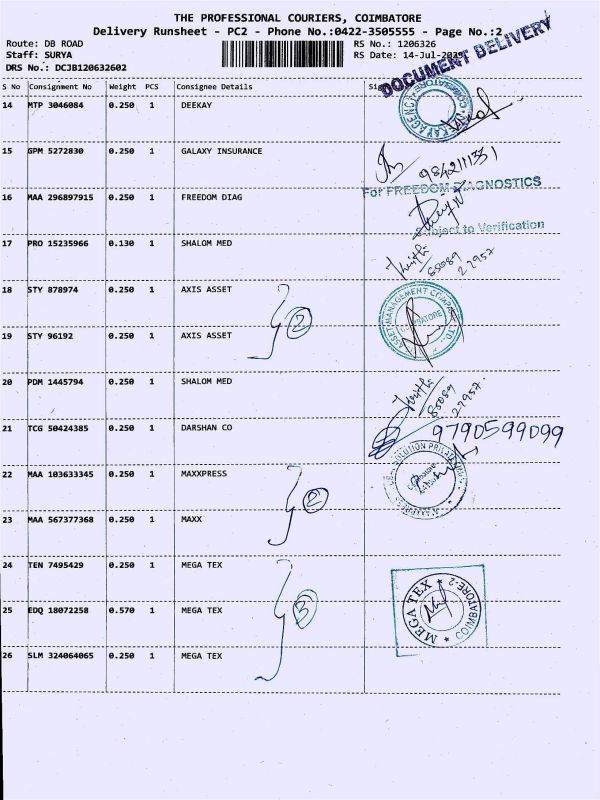 THE PROFESSIONAL COURIERS, COIMBATORE
Delivery Runsheet - PC2 - Phone No.:0422-3505555 - Page No.:2
Route: DB ROAD RS No.: 1206326
Staff: SURYA RS Date: 14-Jul-
DRS No.: DCJB120632602
DOCUMENT DELIVERY
S No Consignment No Weight PCS Consignee Details
14 MTP 3046084 0.250 1 DEEKAY
COIMBATORE
15 GPM 5272830 0.250 1 GALAXY INSURANCE
9842111331
For FREEDOM DIAGNOSTICS
16 MAA 296897915 0.250 1 FREEDOM DIAG
Subject to Verification
17 PRO 15235966 0.130 1 SHALOM MED
65089
27957
18 STY 878974 0.250 1 AXIS ASSET
2
ASSET MANAGEMENT COMPANY LTD.
COIMBATORE
19 STY 96192 0.250 1 AXIS ASSET
20 PDM 1445794 0.250 1 SHALOM MED
65089
27957
21 TCG 50424385 0.250 1 DARSHAN CO
9790599099
22 MAA 103633345 0.250 1 MAXXPRESS
2
23 MAA 567377368 0.250 1 MAXX
24 TEN 7495429 0.250 1 MEGA TEX
25 EDQ 18072258 0.570 1 MEGA TEX
3
MEGA TEX
COIMBATORE-2
26 SLM 324064065 0.250 1 MEGA TEX